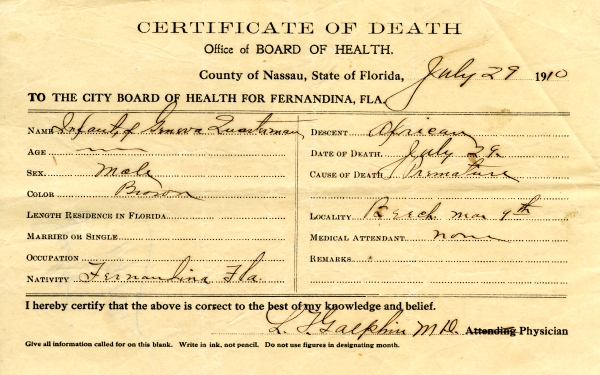 CERTIFICATE OF DEATH
Office of BOARD OF HEALTH.
County of Nassau, State of Florida, July 29 1910
TO THE CITY BOARD OF HEALTH FOR FERNANDINA, FLA.
NAME Infant of Geneva Quarterman
AGE
SEX. Male
COLOR Brown
LENGTH RESIDENCE IN FLORIDA
MARRIED OR SINGLE
OCCUPATION
NATIVITY Fernandina Fla.
DESCENT African
DATE OF DEATH July 29.
CAUSE OF DEATH Premature
LOCALITY Beech near 9th
MEDICAL ATTENDANT none
REMARKS
I hereby certify that the above is correct to the best of my knowledge and belief.
L. F. Galphin M.D. Attending Physician
Give all information called for on this blank. Write in ink, not pencil. Do not use figures in designating month.